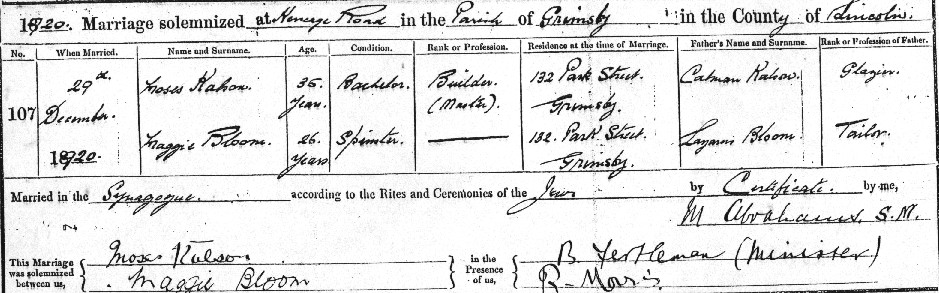 1920. Marriage solemnized at Heneage Road in the Parish of Grimsby in the County of Lincoln.
No. When Married. Name and Surname. Age. Condition. Rank or Profession. Residence at the time of Marriage. Father's Name and Surname. Rank or Profession of Father.
107 29th December. 1920. Moses Kalson. 36 Years. Bachelor. Builder (Master). 132 Park Street. Grimsby. Calman Kalson. Glazier.
Maggie Bloom. 26 Years Spinster. 132. Park Street. Grimsby. Lazarus Bloom. Tailor.
Married in the Synagogue. according to the Rites and Ceremonies of the Jews by Certificate. by me,
M Abrahams, S.M.
This Marriage was solemnized between us, Moses Kalson in the Presence of us, B. (Minister)
Maggie Bloom R. Morris